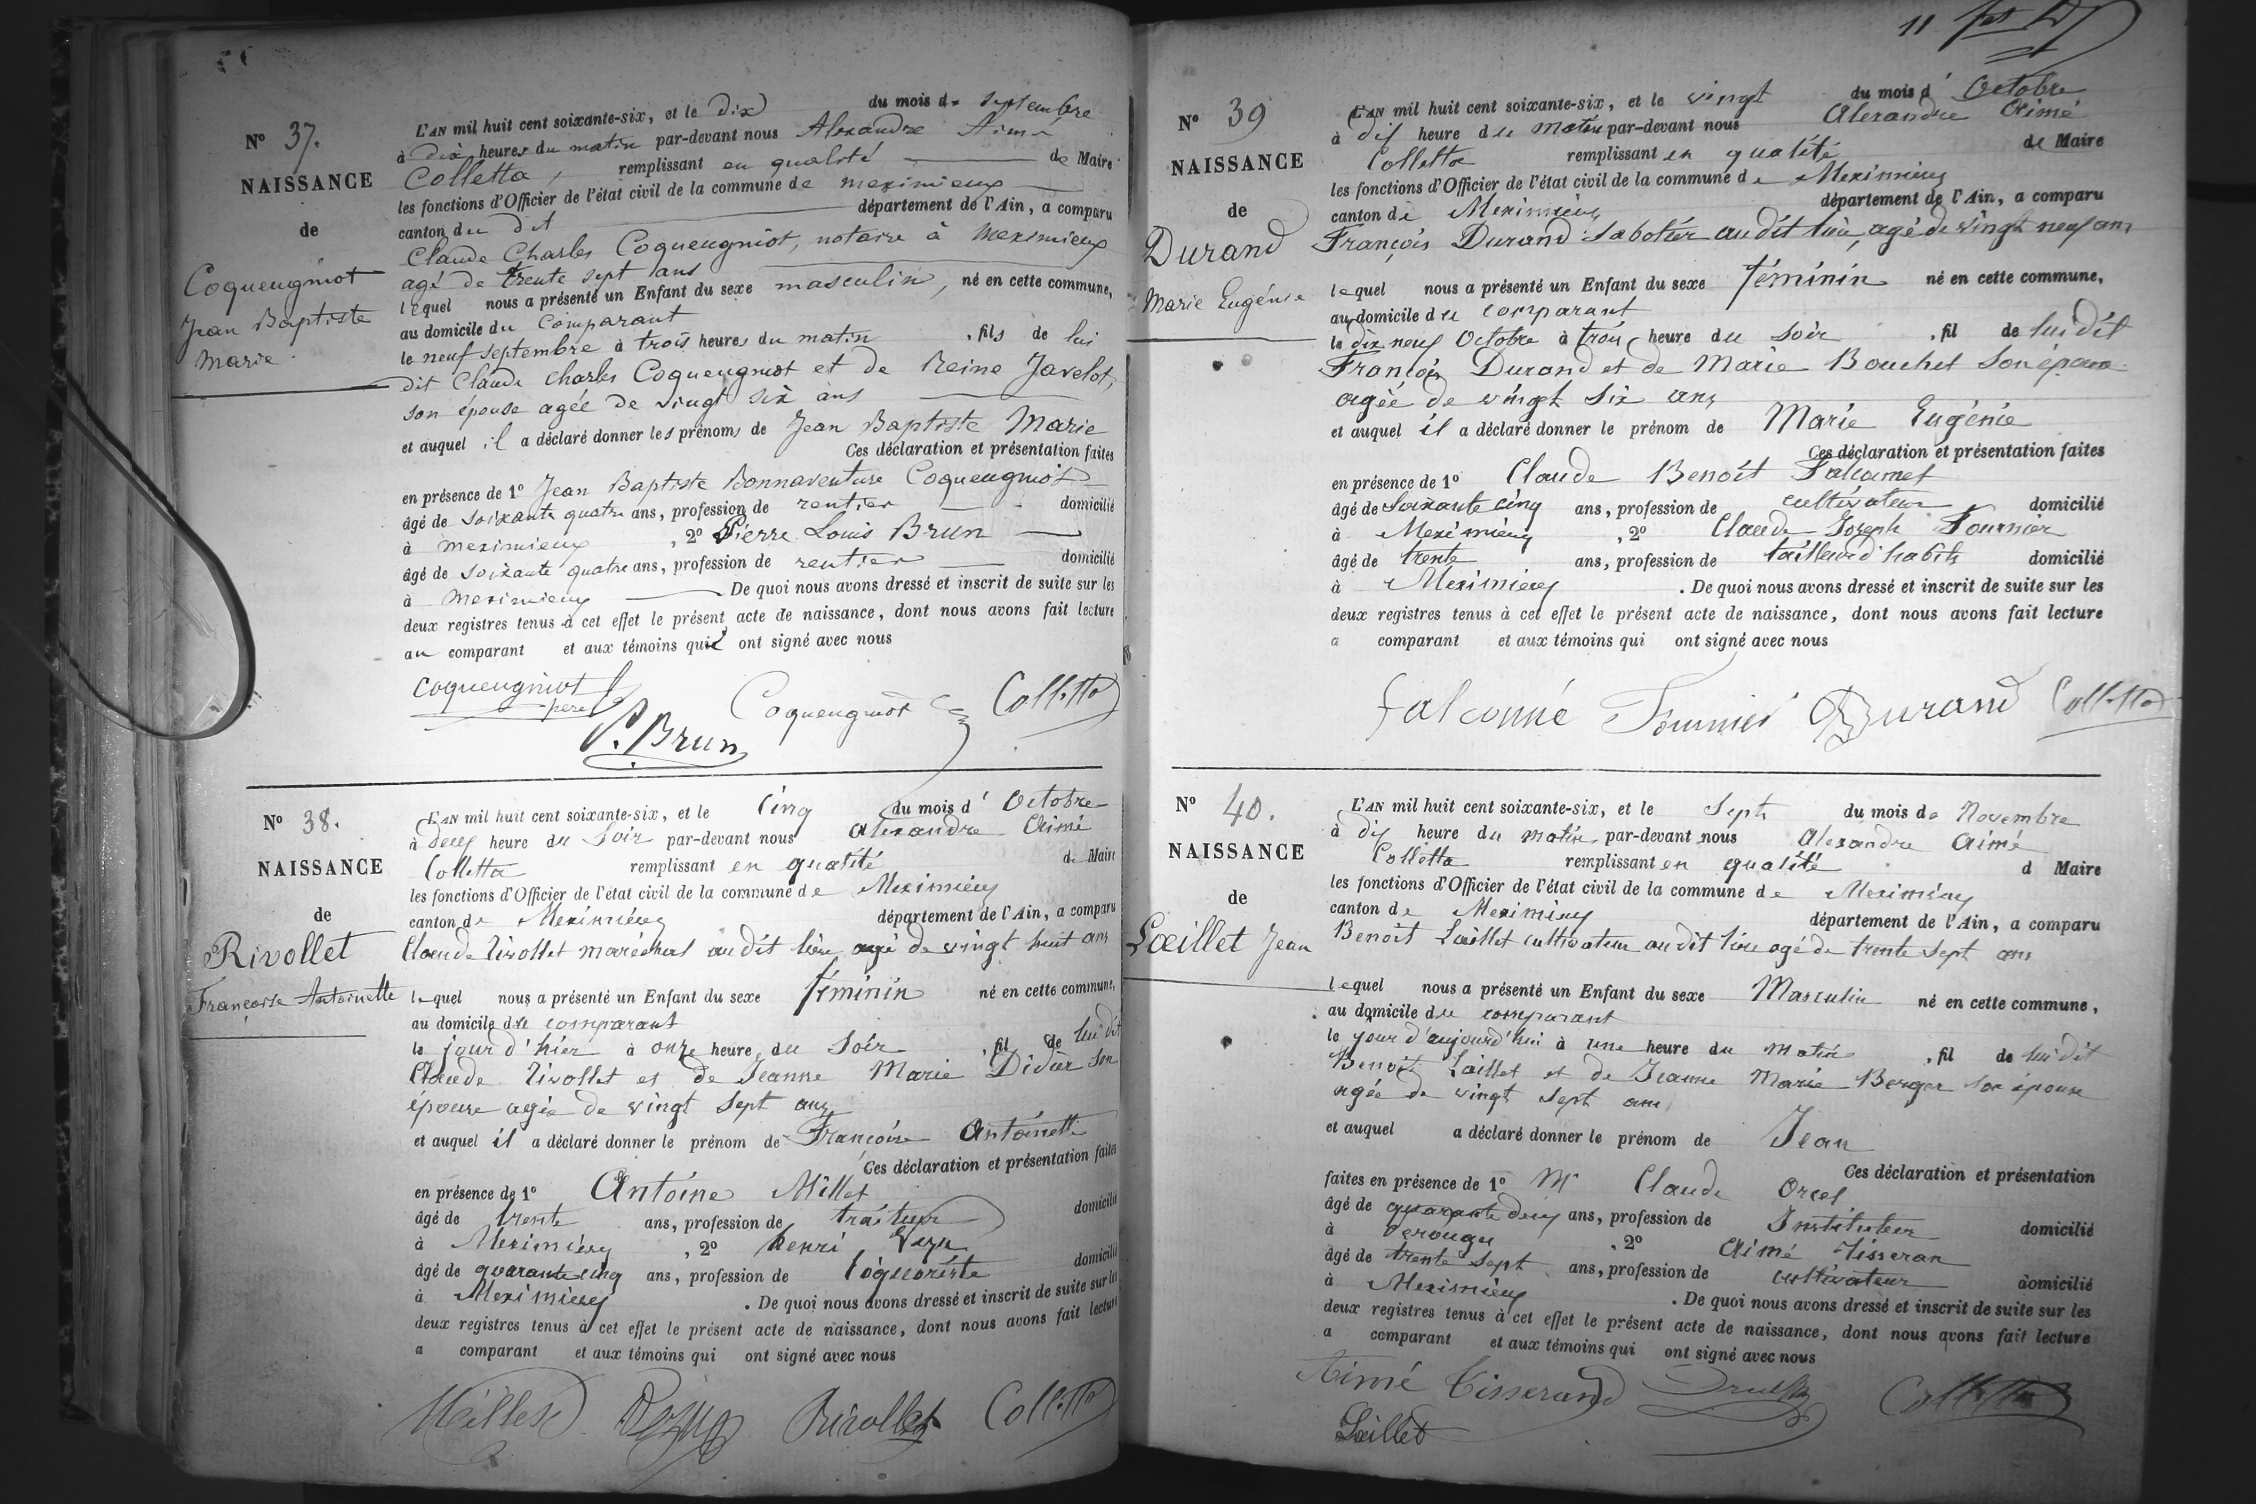 Nº 37.
NAISSANCE
de
Coqueugniot
Jean Baptiste
Marie
L'AN mil huit cent soixante-six, et le dix du mois de septembre
à dix heures du matin par-devant nous Alexandre Aimé
Colletta, remplissant en qualité de Maire
les fonctions d'Officier de l'état civil de la commune de meximieux
canton du dit département de l'Ain, a comparu
Claude Charles Coqueugniot, notaire à Meximieux
agé de trente sept ans
lequel nous a présenté un Enfant du sexe masculin, né en cette commune,
au domicile du comparant
le neuf septembre à trois heures du matin, fils de lui
dit Claude Charles Coqueugniot et de Reine Javelot,
son épouse agée de vingt six ans
et auquel il a déclaré donner les prénoms de Jean Baptiste Marie
Ces déclaration et présentation faites
en présence de 1º Jean Baptiste Bonnaventure Coqueugniot
âgé de soixante quatre ans, profession de rentier domicilié
à meximieux, 2º Pierre Louis Brun
âgé de soixante quatre ans, profession de rentier domicilié
à meximieux De quoi nous avons dressé et inscrit de suite sur les
deux registres tenus à cet effet le présent acte de naissance, dont nous avons fait lecture
au comparant et aux témoins qui ont signé avec nous
Coqueugniot père
P. Brun
Coqueugniot
Colletta
Nº 38.
NAISSANCE
de
Rivollet
Françoise Antoinette
L'AN mil huit cent soixante-six, et le cinq du mois d' Octobre
à deux heure du Soir par-devant nous Alexandre Aimé
Colletta remplissant en qualité de Maire
les fonctions d'Officier de l'état civil de la commune de Meximieux
canton de Meximieux département de l'Ain, a comparu
Claude Rivollet maréchal au dit lieu agé de vingt huit ans
lequel nous a présenté un Enfant du sexe féminin né en cette commune,
au domicile du comparant
le jour d'hier à onze heure du Soir, fil de lui dit
Claude Rivollet et de Jeanne Marie Didier son
épouse agée de vingt sept ans
et auquel il a déclaré donner le prénom de Françoise Antoinette
Ces déclaration et présentation faites
en présence de 1º Antoine Millet
âgé de trente ans, profession de traiteur domicilié
à Meximieux, 2º henri
âgé de quarante cinq ans, profession de liquoriste domicilié
à Meximieux. De quoi nous avons dressé et inscrit de suite sur les
deux registres tenus à cet effet le présent acte de naissance, dont nous avons fait lecture
a comparant et aux témoins qui ont signé avec nous
Millet Rivollet Colletta
11
Nº 39
NAISSANCE
de
Durand
Marie Eugénie
L'AN mil huit cent soixante-six, et le vingt du mois d' Octobre
à dix heure du matin par-devant nous Alexandre Aimé
Colletta remplissant en qualité de Maire
les fonctions d'Officier de l'état civil de la commune de Meximieux
canton de Meximieux département de l'Ain, a comparu
François Durand Sabotier au dit lieu, agé de vingt neuf ans
lequel nous a présenté un Enfant du sexe féminin né en cette commune,
au domicile du comparant
le dix neuf Octobre à trois heure du soir, fil de lui dit
François Durand et de Marie Bouchet son épouse
agée de vingt six ans
et auquel il a déclaré donner le prénom de Marie Eugénie
Ces déclaration et présentation faites
en présence de 1º Claude Benoit Falconnet
âgé de soixante cinq ans, profession de cultivateur domicilié
à Meximieux, 2º Claude Joseph Fournier
âgé de trente ans, profession de tailleur d'habits domicilié
à Meximieux. De quoi nous avons dressé et inscrit de suite sur les
deux registres tenus à cet effet le présent acte de naissance, dont nous avons fait lecture
a comparant et aux témoins qui ont signé avec nous
falconné Fournier Durand Colletta
Nº 40.
NAISSANCE
de
Lœillet Jean
L'AN mil huit cent soixante-six, et le Sept du mois de Novembre
à dix heure du matin par-devant nous Alexandre Aimé
Colletta remplissant en qualité d Maire
les fonctions d'Officier de l'état civil de la commune de Meximieux
canton de Meximieux département de l'Ain, a comparu
Benoit Lœillet cultivateur au dit lieu agé de trente sept ans
lequel nous a présenté un Enfant du sexe Masculin né en cette commune,
au domicile du comparant
le jour d'aujourd'hui à une heure du matin, fil de lui dit
Benoit Lœillet et de Jeanne Marie Berger son épouse
agée de vingt sept ans
et auquel a déclaré donner le prénom de Jean
Ces déclaration et présentation
faites en présence de 1º Mr Claude Orcel
âgé de quarante deux ans, profession de Instituteur domicilié
à Perouges, 2º Aimé Tisseran
âgé de trente sept ans, profession de cultivateur domicilié
à Meximieux. De quoi nous avons dressé et inscrit de suite sur les
deux registres tenus à cet effet le présent acte de naissance, dont nous avons fait lecture
a comparant et aux témoins qui ont signé avec nous
Aimé Tisserand Colletta
Lœillet